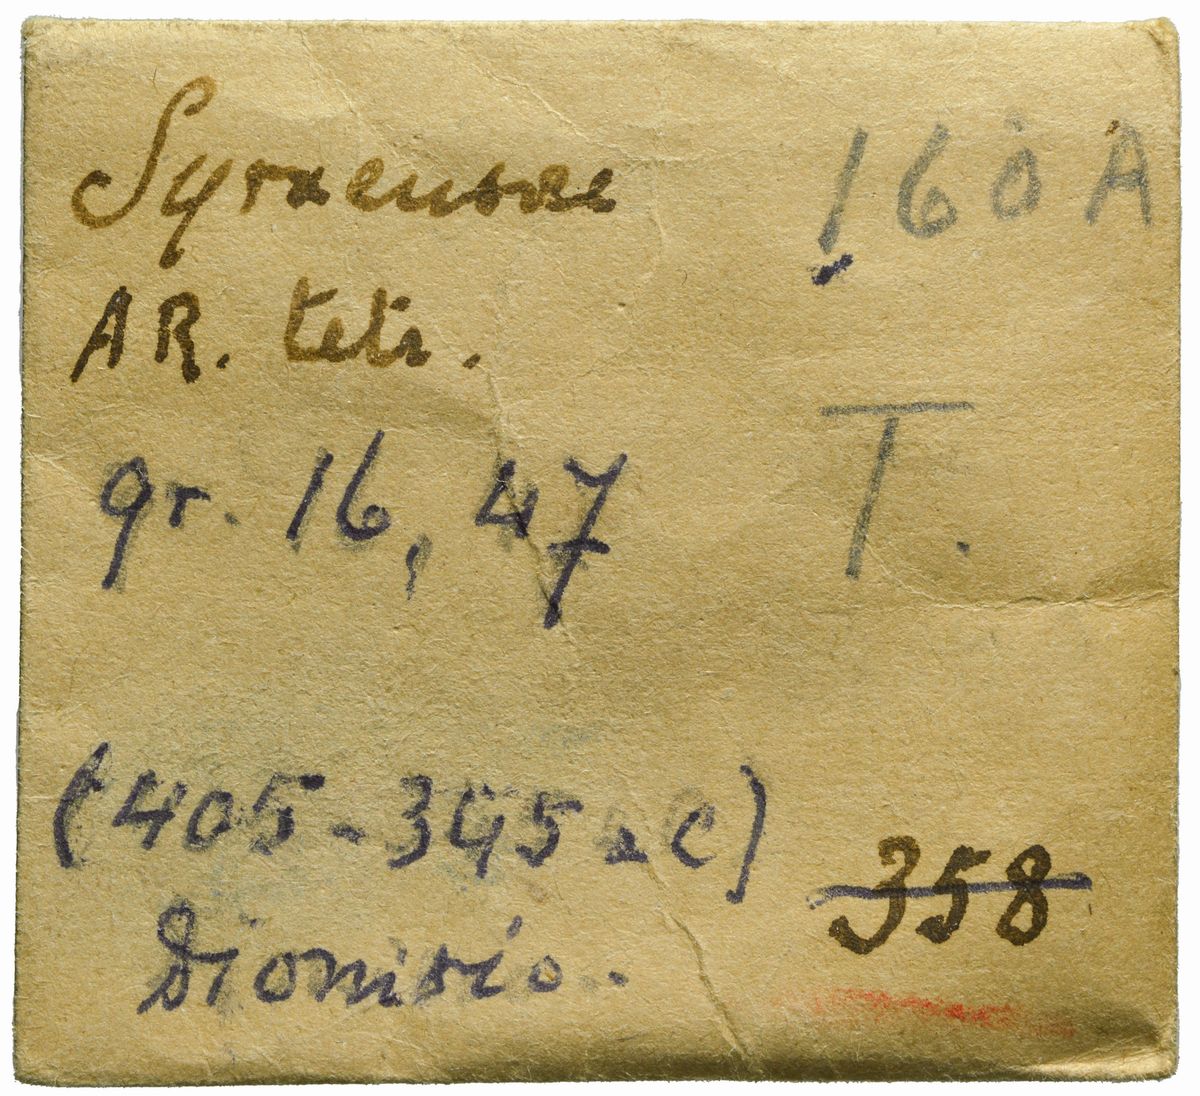 Syracusae
AR. tetr.
gr. 16,47
(405-345 a C)
Dionisio.
160 A
T.
358